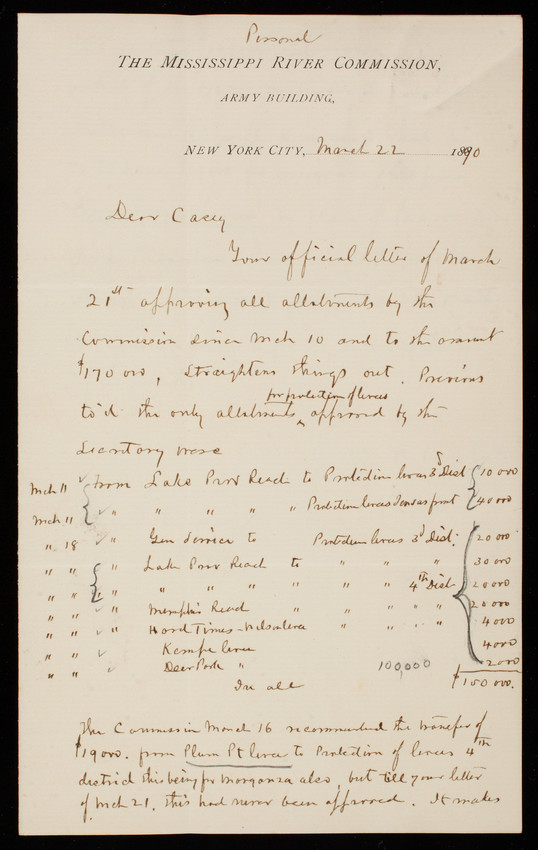 Personal
THE MISSISSIPPI RIVER COMMISSION,
ARMY BUILDING,
NEW YORK CITY, March 22 1890
Dear Casey
Your official letter of March
21st approving all allotments by the
Commission since Mch 10 and to the amount
$170 000, straightens things out. Previous
to it the only allotments approved by the
for protection of levees
Secretary were
Mch 11 from Lake Prov Reach to Protection levees 3d Dist 10 000
Mch 11 " " " " " Protection levees Tensas front 40 000
" 18 " Gen Service to Protection levees 3d Dist. 20 000
" " " Lake Prov Reach to " " " 30 000
" " " " " " " " " 4th Dist 20 000
" " " Memphis Reach " " " " " 20 000
" " " Hard Times - Wilson levee " " " " 4 000
" " Kempe levee 4000
" " Deer Park " 100,000 2000
In all $150 000.
The Commission March 16 recommended the transfer of
$19000. from Plum Pt levee to Protection of levees 4th
district this being for Morganza also, but till your letter
of Mch 21, this had never been approved. It makes